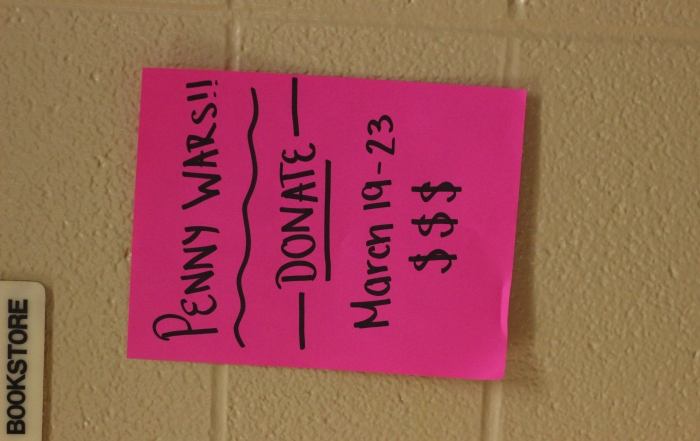 PENNY WARS!!
— DONATE —
March 19-23
$ $ $
BOOKSTORE